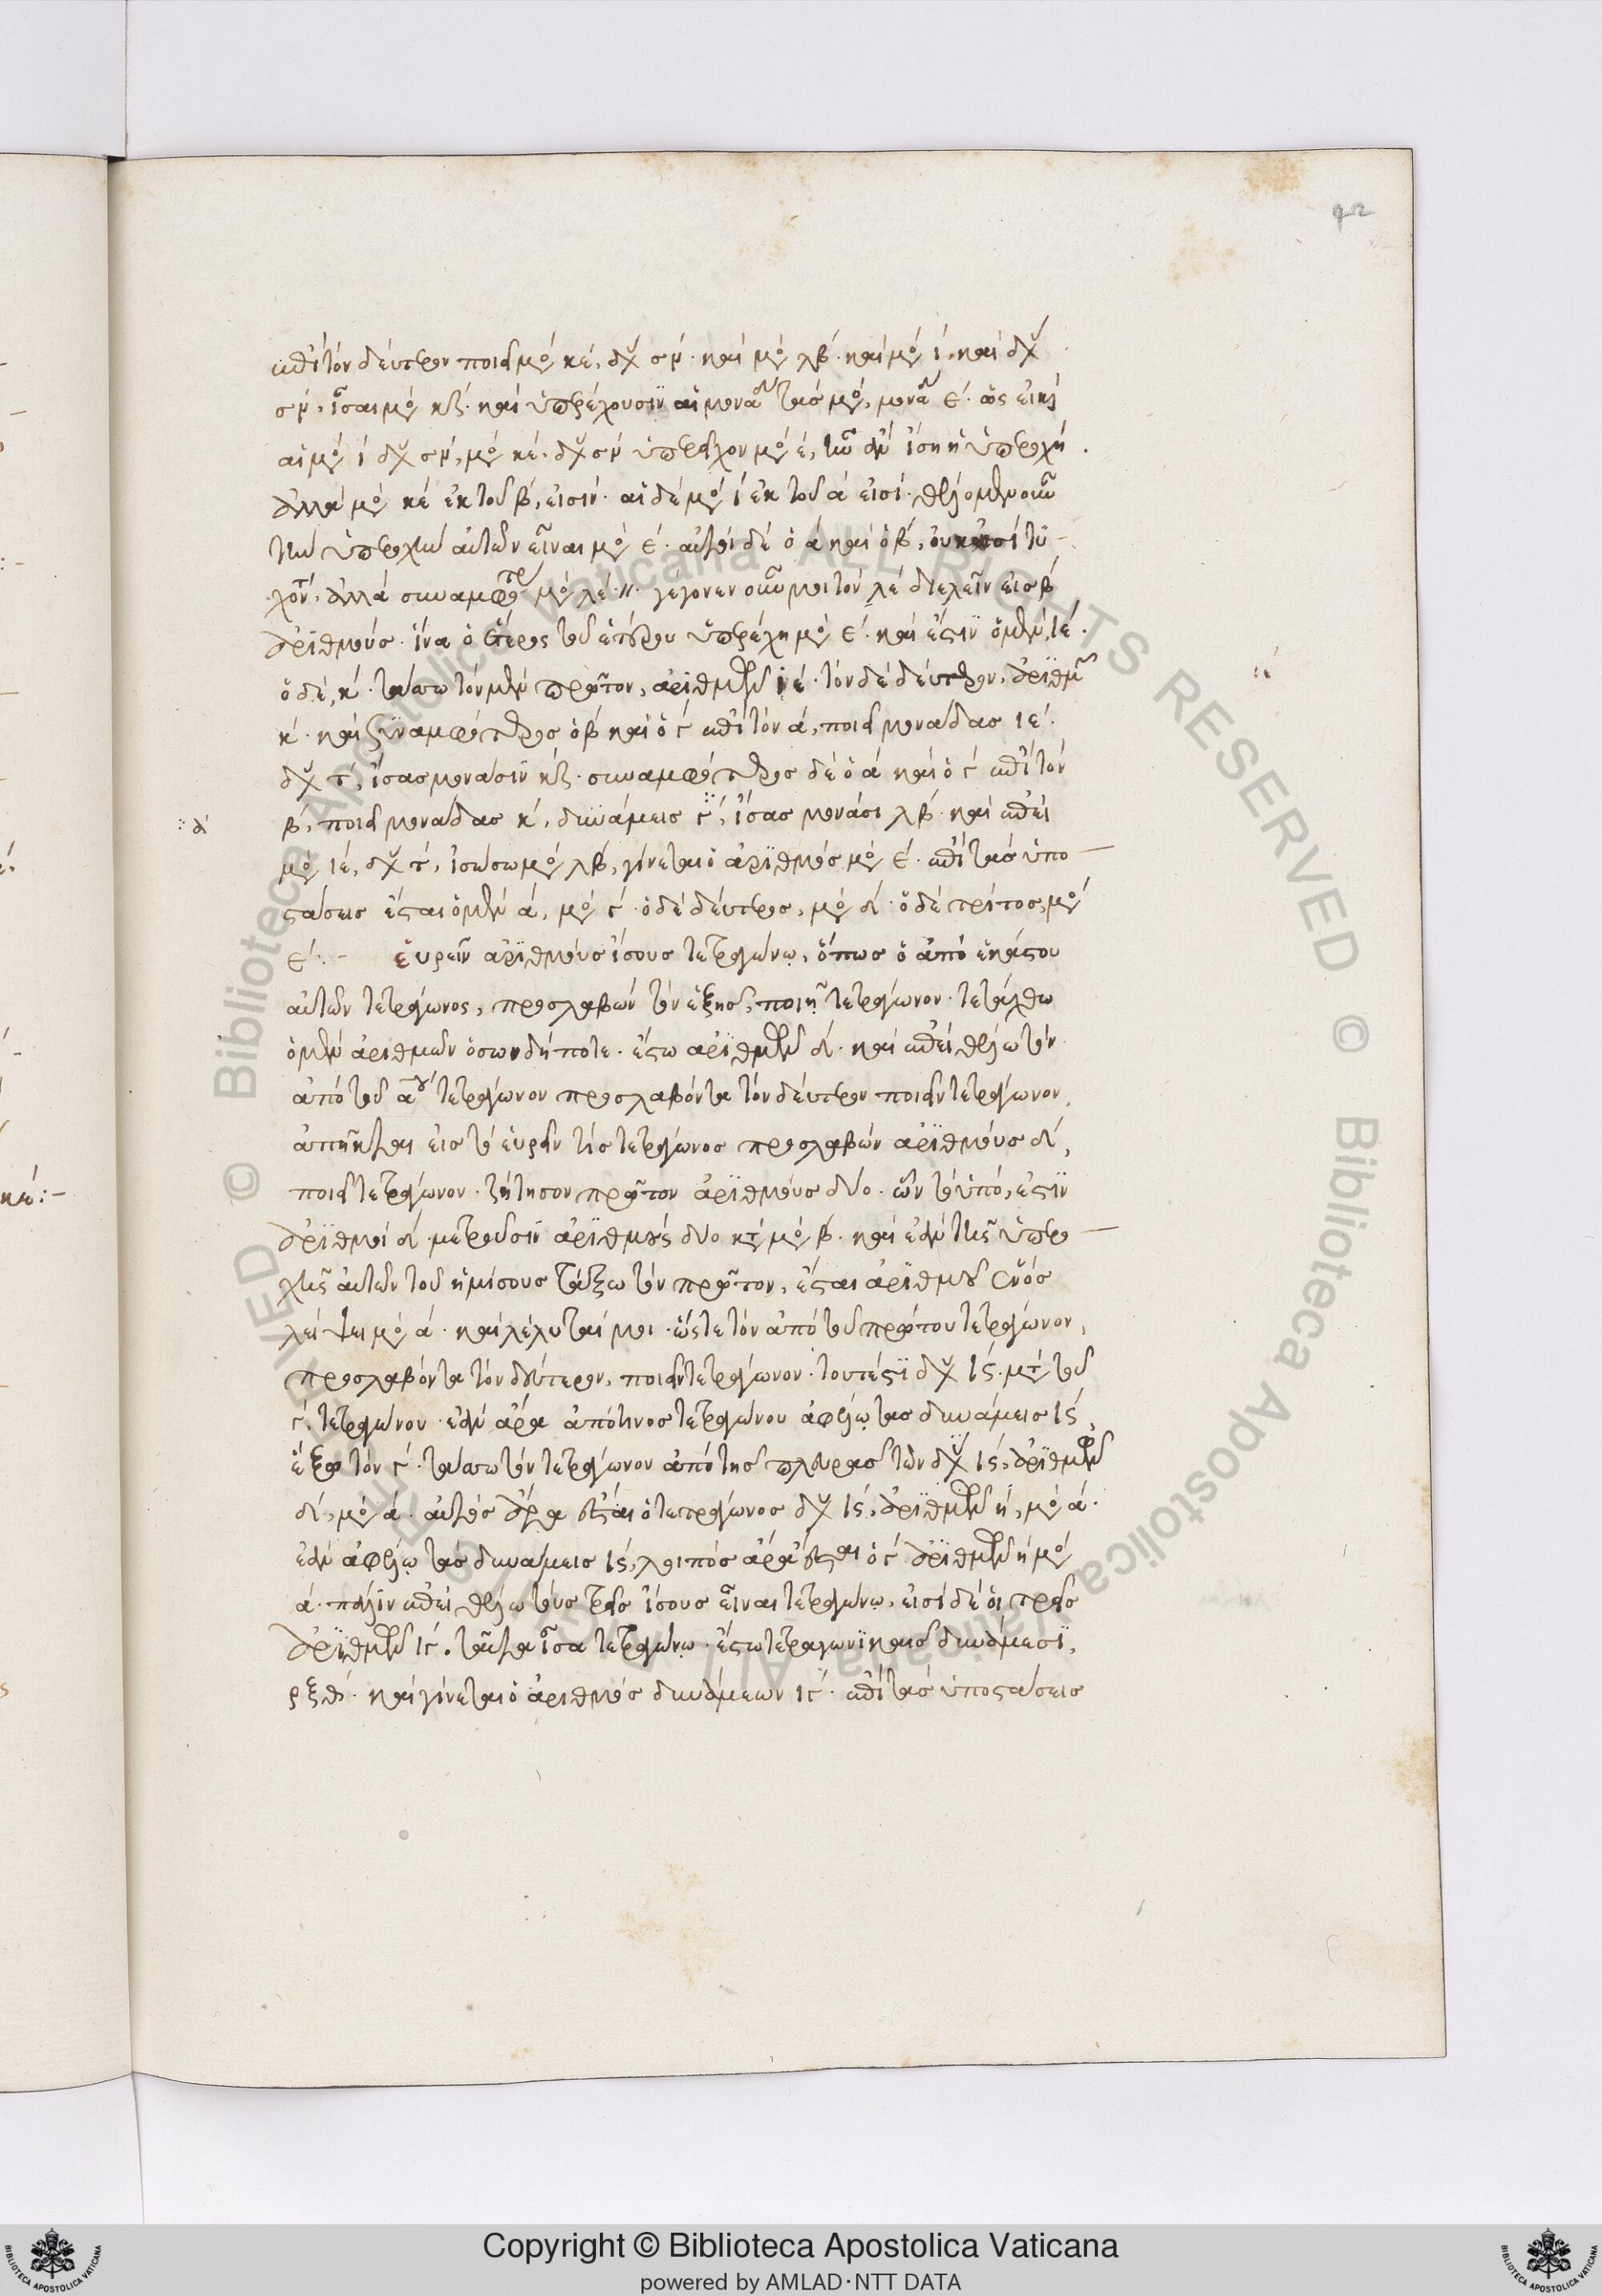 92
ἐπὶ τὸν δεύτερον ποιεῖ μο κε, δυ σν. καὶ μο λβ. καὶ μο ι, καὶ δυ
σν, ἴσαι μο κζ. καὶ ὑπερέχουσιν αἱ μονάδες τὰς μο, μονάδ ε. ὡς εἰ καὶ
αἱ μο ι δυ σν, μο κε. δυ σν ὑπερεῖχον μο ε, τῶ ἂν ἴση ἡ ὑπεροχή.
ἀλλὰ μο κε ἐκ τοῦ β, εἰσίν. αἱ δὲ μο ι ἐκ τοῦ α εἰσί. θέλομεν οὖν
τὴν ὑπεροχὴν αὐτῶν εἶναι μο ε. αὐτοὶ δὲ ὁ α καὶ ὁ β, οὐκ εἰσὶ τυ
χόντ, ἀλλὰ συναμφότερ μο λε. γέγονεν οὖν μοι τὸν λε διελεῖν εἰς β
ἀριθμούς. ἵνα ὁ ἕτερος τοῦ ἑτέρου ὑπερέχη μο ε. καὶ ἔστιν ὁ μὲν, ιε.
ὁ δὲ, κ. τάσσω τὸν μὲν πρῶτον, ἀριθμῶν ιε. τὸν δὲ δεύτερον, ἀριθμῶν
κ. καὶ συναμφότερος ὁ β καὶ ὁ γ ἐπὶ τὸν α, ποιεῖ μονάδας ιε.
δυ τ, ἴσας μονάσιν κζ. συναμφότερος δὲ ὁ α καὶ ὁ γ ἐπὶ τὸν
β, ποιεῖ μονάδας κ, δυνάμεις τ, ἴσας μονάσι λβ. καὶ ἐπεὶ
μο ιε, δυ τ, ἰσώσω μο λβ, γίνεται ὁ ἀριθμὸς μο ε. ἐπὶ τὰς ὑπο
στάσεις ἔσται ὁ μὲν α, μο γ. ὁ δὲ δεύτερος, μο δ. ὁ δὲ τρίτος, μο
ε. εὑρεῖν ἀριθμοὺς ἴσους τετραγώνω, ὅπως ὁ ἀπὸ ἑκάστου
αὐτῶν τετράγωνος, προσλαβὼν τὸν ἑξῆς, ποιῇ τετράγωνον. τετάχθω
ὁ μὲν ἀριθμῶν ὁσωνδήποτε. ἔστω ἀριθμῶν δ. καὶ ἐπεὶ θέλω τὸν
ἀπὸ τοῦ α τετράγωνον προσλαβόντα τὸν δεύτερον ποιεῖν τετράγωνον,
ἀπῆκται εἰς τὸ εὑρεῖν τίς τετράγωνος προσλαβὼν ἀριθμοὺς δ,
ποιεῖ τετράγωνον. ζήτησον πρῶτον ἀριθμοὺς δύο. ὧν τὸ ὑπό, ἐστιν
ἀριθμοὶ δ. μετροῦσιν ἀριθμοὺς δύο κτ μο β. καὶ ἐὰν τῆς ὑπερο
χῆς αὐτῶν τοῦ ἡμίσους τάξω τὸν πρῶτον, ἔσται ἀριθμοῦ ἑνὸς
λείψει μο α. καὶ λέλυταί μοι. ὥστε τὸν ἀπὸ τοῦ πρώτου τετράγωνον,
προσλαβόντα τὸν δεύτερον, ποιεῖν τετράγωνον. τουτέστι δυ ις. μτ τοῦ
γ, τετραγώνου. ἐὰν ἄρα ἀπό τινος τετραγώνου ἀφέλω τὰς δυνάμεις ις,
ἕξω τὸν γ. τάσσω τὸν τετράγωνον ἀπὸ τῆς πλευρᾶς τῶν δυ ις, ἀριθμῶν
δ, μο α. αὐτὸς ἄρα ἔσται ὁ τετράγωνος δυ ις, ἀριθμῶν η, μο α.
ἐὰν ἀφέλω τὰς δυνάμεις ις, λοιπὸς ἄρα ἔσται ὁ γ ἀριθμῶν η μο
α. πάλιν ἐπεὶ θέλω τοὺς τρεῖς ἴσους εἶναι τετραγώνω, εἰσὶ δὲ οἱ τρεῖς
ἀριθμῶν ιγ. ταῦτα ἴσα τετραγώνω. ἔστω τετραγωνικαῖς δυνάμεσι,
ρξθ. καὶ γίνεται ὁ ἀριθμὸς δυνάμεων ιγ. ἐπὶ τὰς ὑποστάσεις
Copyright © Biblioteca Apostolica Vaticana
powered by AMLAD·NTT DATA